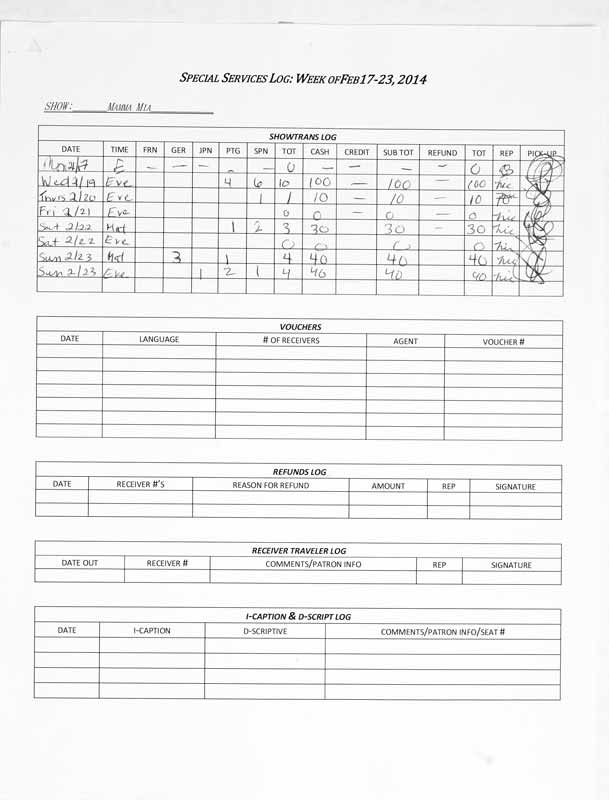 SPECIAL SERVICES LOG: WEEK OF FEB 17-23, 2014
SHOW: MAMMA MIA
SHOWTRANS LOG
DATE TIME FRN GER JPN PTG SPN TOT CASH CREDIT SUB TOT REFUND TOT REP PICK-UP
Mon 2/17 E — — — - — 0 — — — — 0
Wed 2/19 Eve 4 6 10 100 — 100 — 100 hic
Thurs 2/20 Eve 1 1 10 — 10 — 10
Fri 2/21 Eve 0 0 — 0 — 0 hic
Sat 2/22 Mat 1 2 3 30 30 — 30 hic
Sat 2/22 Eve 0 0 0 0 hic
Sun 2/23 Mat 3 1 4 40 40 40 hic
Sun 2/23 Eve 1 2 1 4 40 40 40 hic
VOUCHERS
DATE LANGUAGE # OF RECEIVERS AGENT VOUCHER #
REFUNDS LOG
DATE RECEIVER #'S REASON FOR REFUND AMOUNT REP SIGNATURE
RECEIVER TRAVELER LOG
DATE OUT RECEIVER # COMMENTS/PATRON INFO REP SIGNATURE
I-CAPTION & D-SCRIPT LOG
DATE I-CAPTION D-SCRIPTIVE COMMENTS/PATRON INFO/SEAT #